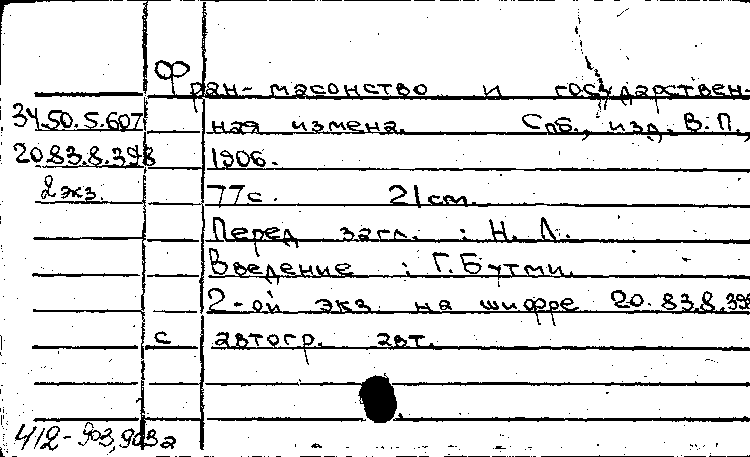 Фран-масонство и государствен-
34.50.5.607 ная измена. Спб., изд. В.П.,
20.83.8.398 1906.
2 экз. 77с. 21cm.
Перед загл. : Н. Л.
Введение : Г. Бутми.
2-ой экз. на шифре 20.83.8.398
с автогр. авт.
412-903,903а